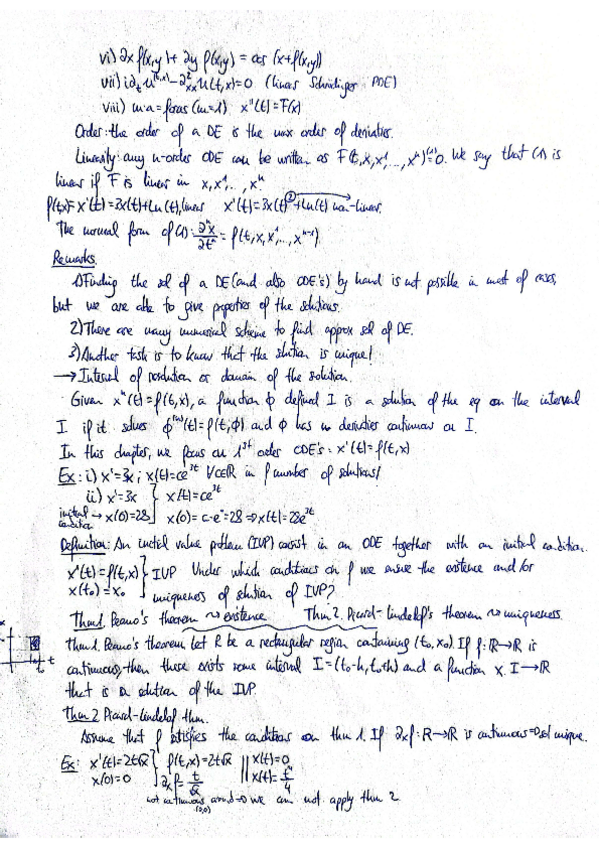 vi) ∂x f(x,y) + ∂y f(x,y) = cos (x+f(x,y))
vii) i∂t u(t,x) - ∂²xx u(t,x) = 0 (linear Schrödinger PDE)
viii) m·a = forces (m=1) x''(t) = F(x)
Order: the order of a DE is the max order of derivatives.
Linearity: any n-order ODE can be written as F(t, x, x', ..., xⁿ) = 0. We say that (1) is
linear if F is linear in x, x', ..., xⁿ
x'(t) = 3x(t) + ln(t), linear x'(t) = 3x(t)² + ln(t) non-linear.
The normal form of (1): ∂ⁿx/∂tⁿ = f(t, x, x', ..., xⁿ⁻¹)
Remarks
1) Finding the sol of a DE (and also ODE's) by hand is not possible in most of cases,
but we are able to give properties of the solutions.
2) There are many numerical scheme to find approx sol of DE.
3) Another task is to know that the solution is unique!
→ Interval of or domain of the solution.
Given xⁿ(t) = f(t,x), a function ϕ defined I is a solution of the eq on the interval
I if it solves ϕ⁽ⁿ⁾(t) = f(t,ϕ) and ϕ has n derivaties continuous on I.
In this chapter, we focus on 1st order ODE's: x'(t) = f(t,x)
Ex: i) x' = 3x; x(t) = ce³ᵗ ∀c∈ℝ number of solutions!
ii) x' = 3x } x(t) = ce³ᵗ
initial condition → x(0) = 28 } x(0) = c·e⁰ = 28 ⇒ x(t) = 28e³ᵗ
Definition: An initial value problem (IVP) consist in an ODE together with an initial condition.
x'(t) = f(t,x) } IVP Under which conditions on f we ensure the existence and/or
x(t₀) = x₀ } uniqueness of solution of IVP?
Thm 1. Peano's theorem ⤳ existence Thm 2. Picard-Lindelöf's theorem ⤳ uniqueness.
x
t
Thm 1. Peano's theorem Let R be a rectangular region containing (t₀, x₀). If f: R→ℝ is
continuous, then there exists some interval I = (t₀-h, t₀+h) and a function x: I→ℝ
that is a solution of the IVP.
Thm 2 Picard-Lindelöf thm.
Assume that f satisfies the conditions on thm 1. If ∂xf: R→ℝ is continuous ⇒ sol unique.
Ex: x'(t) = 2t√x } f(t,x) = 2t√x || x(t) = 0
x(0) = 0 } ∂x f = t/√x || x(t) = t⁴/4
not continuous around (0,0) ⇒ we can not apply thm 2